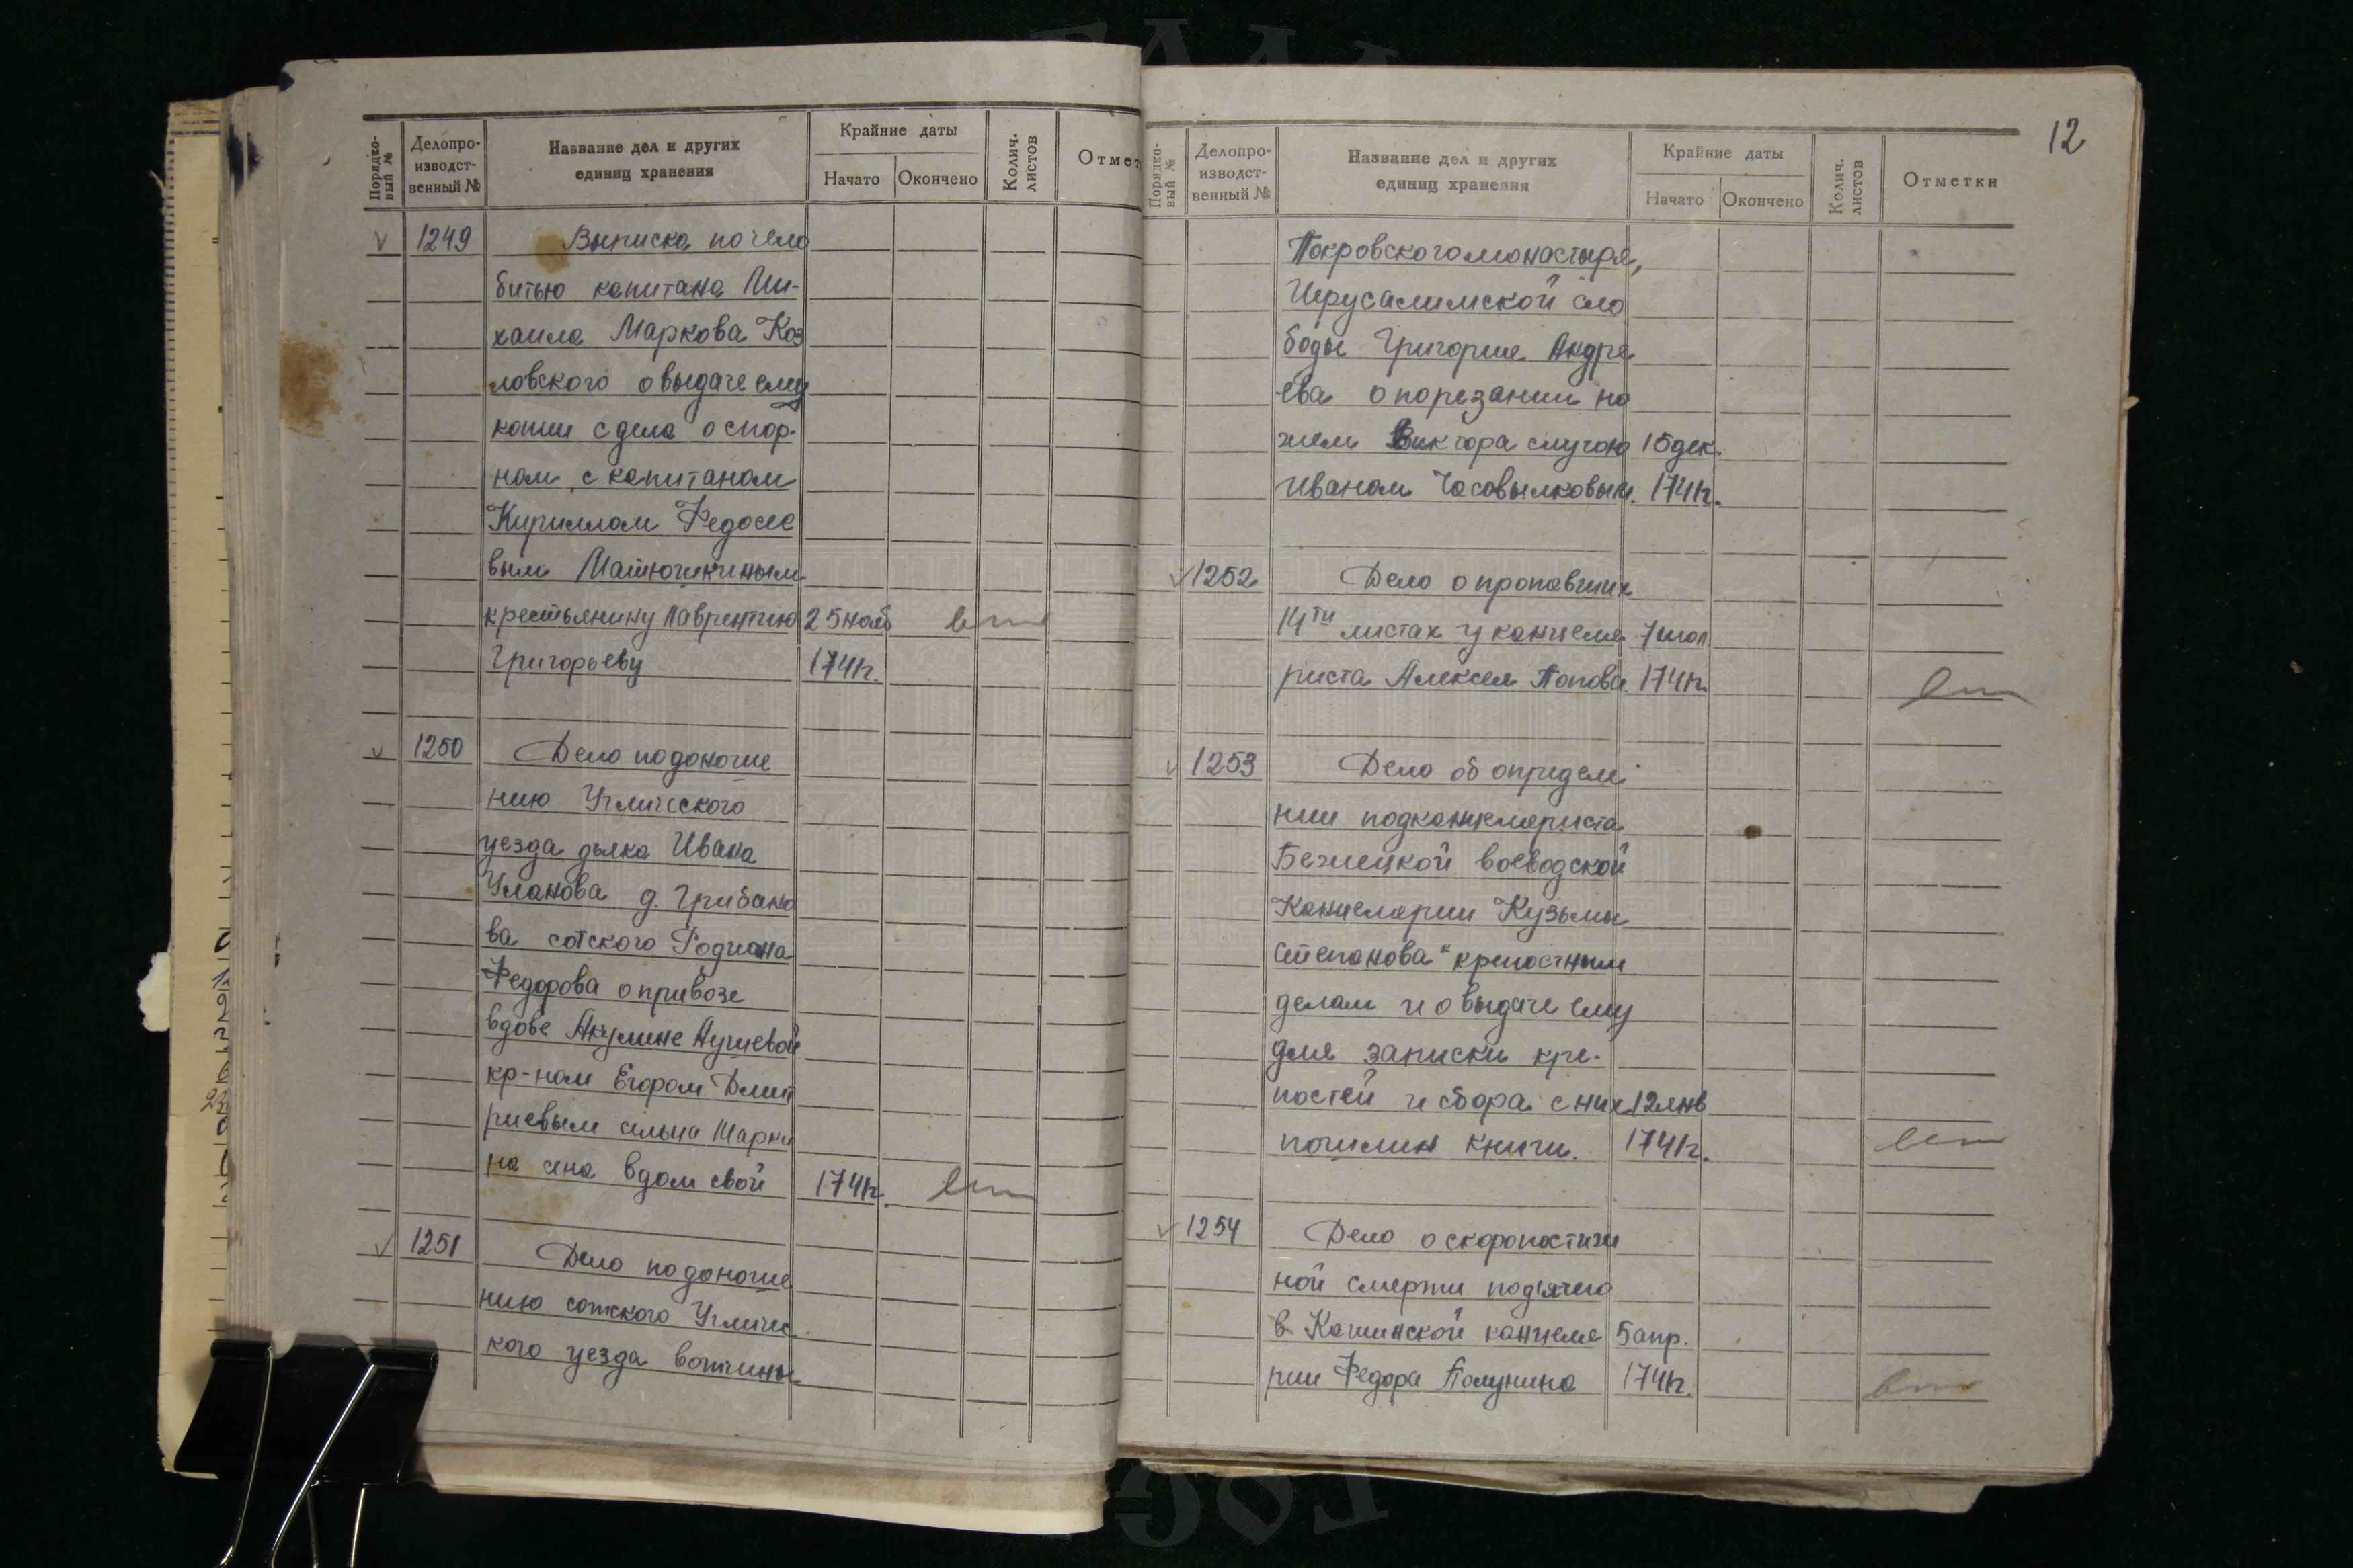 Порядко-
вый №
Делопро-
изводст-
венный №
Название дел и других
единиц хранения
Крайние даты
Начато Окончено
Колич.
листов
Отмет
V 1249 Выписка по чело
битью капитана Ми-
хаила Маркова Коз
ловского о выдаче ему
копии с дела о спор-
ном с капитаном
Кириллом Федосее
вым Матюшкиным
крестьянину Лаврентию 25 нояб
Григорьеву 174 г.
V 1250 Дело по доноше
нию Угличского
уезда дьяка Ивана
Уланова д. Грибано
ва сотского Родиона
Федорова о привозе
вдове Акулине
кр-ном Егором Дмит
риевым сельца Марки
на сена в дом свой 174 г.
V 1251 Дело по доноше
нию сотского Угличс
кого уезда вотчины
12
Порядко-
вый №
Делопро-
изводст-
венный №
Название дел и других
единиц хранения
Крайние даты
Начато Окончено
Колич.
листов
Отметки
Покровского монастыря,
Иерусалимской сло
боды Григория Андре
ева о порезании но
жем Виктора слугою 15 дек.
Иваном 174 г.
V 1252 Дело о пропавших
14ти листах у канцеля 7 июл
риста Алексея Попова 174 г.
V 1253 Дело об определе
нии подканцеляриста
Бежецкой воеводской
Канцелярии Кузьмы
Степанова к крепостным
делам и о выдаче ему
для записки кре-
постей и сбора с них 12 янв
пошлин книги. 174 г.
V 1254 Дело о скоропостиж
ной смерти подъячего
в Кашинской канцеля 5 апр.
рии Федора Полунина 174 г.